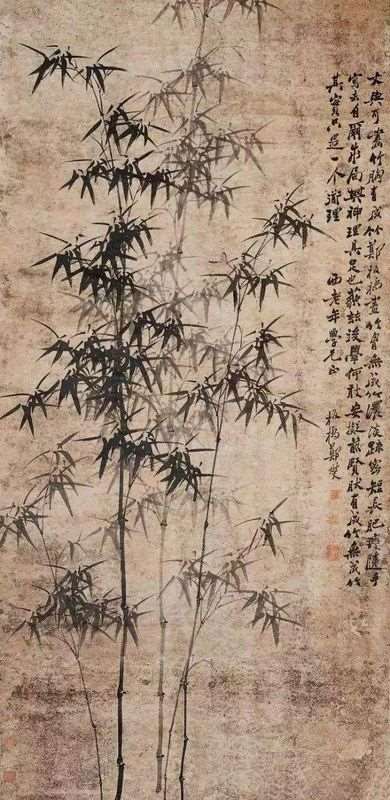 文與可畫竹胸有成竹鄭板橋畫竹胸無成竹濃淡疎密短長肥瘦隨手
寫去自爾成局其神理具足也藐茲後學何敢妄擬前賢然有成竹無成竹
其實只是一个道理 老年學兄正 板橋鄭燮